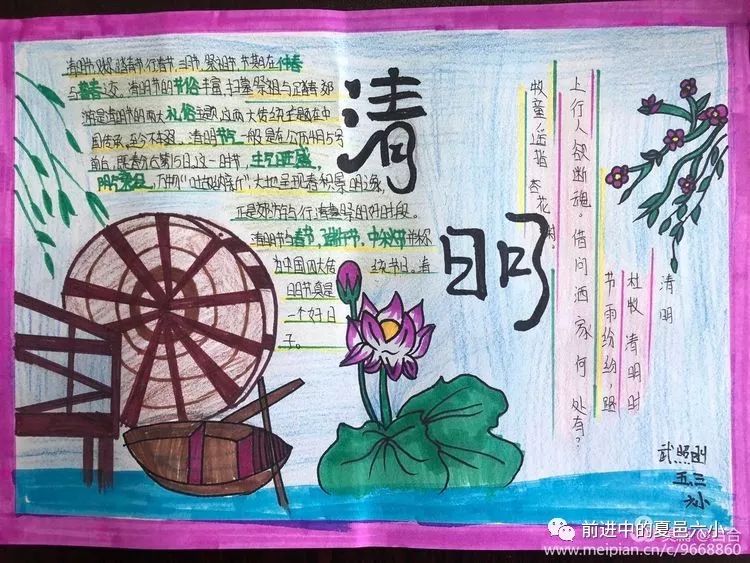 清明节又叫踏青节、行春节、三月节、祭祖节,节期在仲春
与暮春之交。清明节的节俗丰富,扫墓祭祖与踏青郊
游是清明节的两大礼俗主题,这两大传统主题在中
国传承,至今不辍。清明节一般是在公历4月5号
前后,既春分后第15日,这一时节,生气旺盛,
万物"吐故纳新",大地呈现春和景明之象,
正是郊外与行清墓祭的好时段。
清明节与春节、端午节、中秋节并称
为中国四大传统节日。清
明节真是
一个好日
子。
清
明
清明
杜牧 清明时
节雨纷纷,路
上行人欲断魂。借问酒家何处有?
牧童遥指杏花
武照刚
五三
六小
前进中的夏邑六小
www.meipian.cn/c/9668860